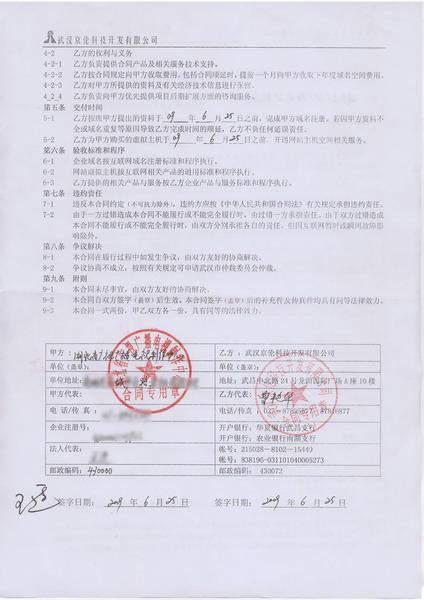 武汉京伦科技开发有限公司
4-2 乙方的权利与义务
4-2-1 乙方负责提供合同产品及相关服务技术支持。
4-2-2 乙方按合同规定向甲方收取费用,包括合同顺延时,提前一个月向甲方收取下年度域名空间费用。
4-2-3 乙方对甲方所提供的资料及有关经济技术信息进行保密。
4-2-4 乙方负责向甲方优先提供项目后期扩展方面的咨询服务。
第五条 交付时间
5-1 乙方按照甲方提出的资料于 09 年 6 月 25 日之前,完成甲方域名注册。若因甲方资料不
全或域名重复等原因导致乙方完成时间的顺延,乙方不负任何延误责任。
5-2 乙方为甲方购买的虚拟主机于 09 年 6 月 25 日之前,开通网站主机空间相关服务。
第六条 验收标准和程序
6-1 企业域名按互联网域名注册标准和程序执行。
6-2 网站虚拟主机按互联网相关产品的通用标准和程序执行。
6-3 乙方提供的相关产品与服务按乙方企业产品与服务标准和程序执行。
第七条 违约责任
7-1 违反本合同约定(不可抗力除外),违约方应按《中华人民共和国合同法》有关规定承担违约责任。
7-2 由于一方过错造成本合同不能履行或不能完全履行时,由过错一方承担责任。由于双方过错造成
本合同不能履行或不能完全履行时,由双方分别承担各自的责任。但因互联网暂时或瞬间故障影
响除外。
第八条 争议解决
8-1 本合同在履行过程中如发生争议,由双方友好的协商解决。
8-2 争议协商不成立,按照有关规定可申请武汉市仲裁委员会仲裁。
第九条 附则
9-1 本合同未尽事宜,由双方友好的协商解决。
9-2 本合同自双方签字(盖章)后生效。本合同签字(盖章)后的补充件及传真件均具有同等法律效力。
9-3 本合同一式两份,甲乙双方各一份,具有同等的法律效力。
甲方:
乙方:武汉京伦科技开发有限公司
单位(盖章):
单位(盖章):
单位地址:
地址:武昌中北路24号龙源国际广场A座10楼
甲方代表:
乙方代表:
电话/传真:
电话/传真:
企业注册号:
开户银行:华夏银行武昌支行
开户银行:农业银行南湖支行
法人代表:
帐号:215028-8102-15449
帐号:838196-031101040005273
邮政编码:430000
邮政编码:430072
合同专用章
合同专用章
签字日期:2009 年 6 月 25 日
签字日期:2009 年 6 月 25 日